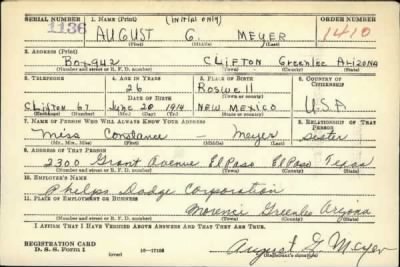 SERIAL NUMBER 1. NAME (Print) (INITIAL ONLY) ORDER NUMBER
1136 AUGUST G. MEYER 1410
(First) (Middle) (Last)
2. ADDRESS (Print)
Box 942 CLIFTON Greenlee ARIZONA
(Number and street or R. F. D. number) (Town) (County) (State)
3. TELEPHONE 4. AGE IN YEARS 5. PLACE OF BIRTH 6. COUNTRY OF CITIZENSHIP
26 Roswell
DATE OF BIRTH (Town or county)
Clifton 67 June 20 1914 NEW MEXICO U.S.A
(Exchange) (Number) (Mo.) (Day) (Yr.) (State or country)
7. NAME OF PERSON WHO WILL ALWAYS KNOW YOUR ADDRESS 8. RELATIONSHIP OF THAT PERSON
Miss Constance – Meyer Sister
(Mr., Mrs., Miss) (First) (Middle) (Last)
9. ADDRESS OF THAT PERSON
2300 Grant Avenue El Paso El Paso Texas
(Number and street or R. F. D. number) (Town) (County) (State)
10. EMPLOYER'S NAME
Phelps Dodge Corporation
11. PLACE OF EMPLOYMENT OR BUSINESS
Morenci Greenlee Arizona
(Number and street or R. F. D. number) (Town) (County) (State)
I AFFIRM THAT I HAVE VERIFIED ABOVE ANSWERS AND THAT THEY ARE TRUE.
REGISTRATION CARD
D. S. S. Form 1 (over) 16—17105 August G. Meyer
(Registrant's signature)